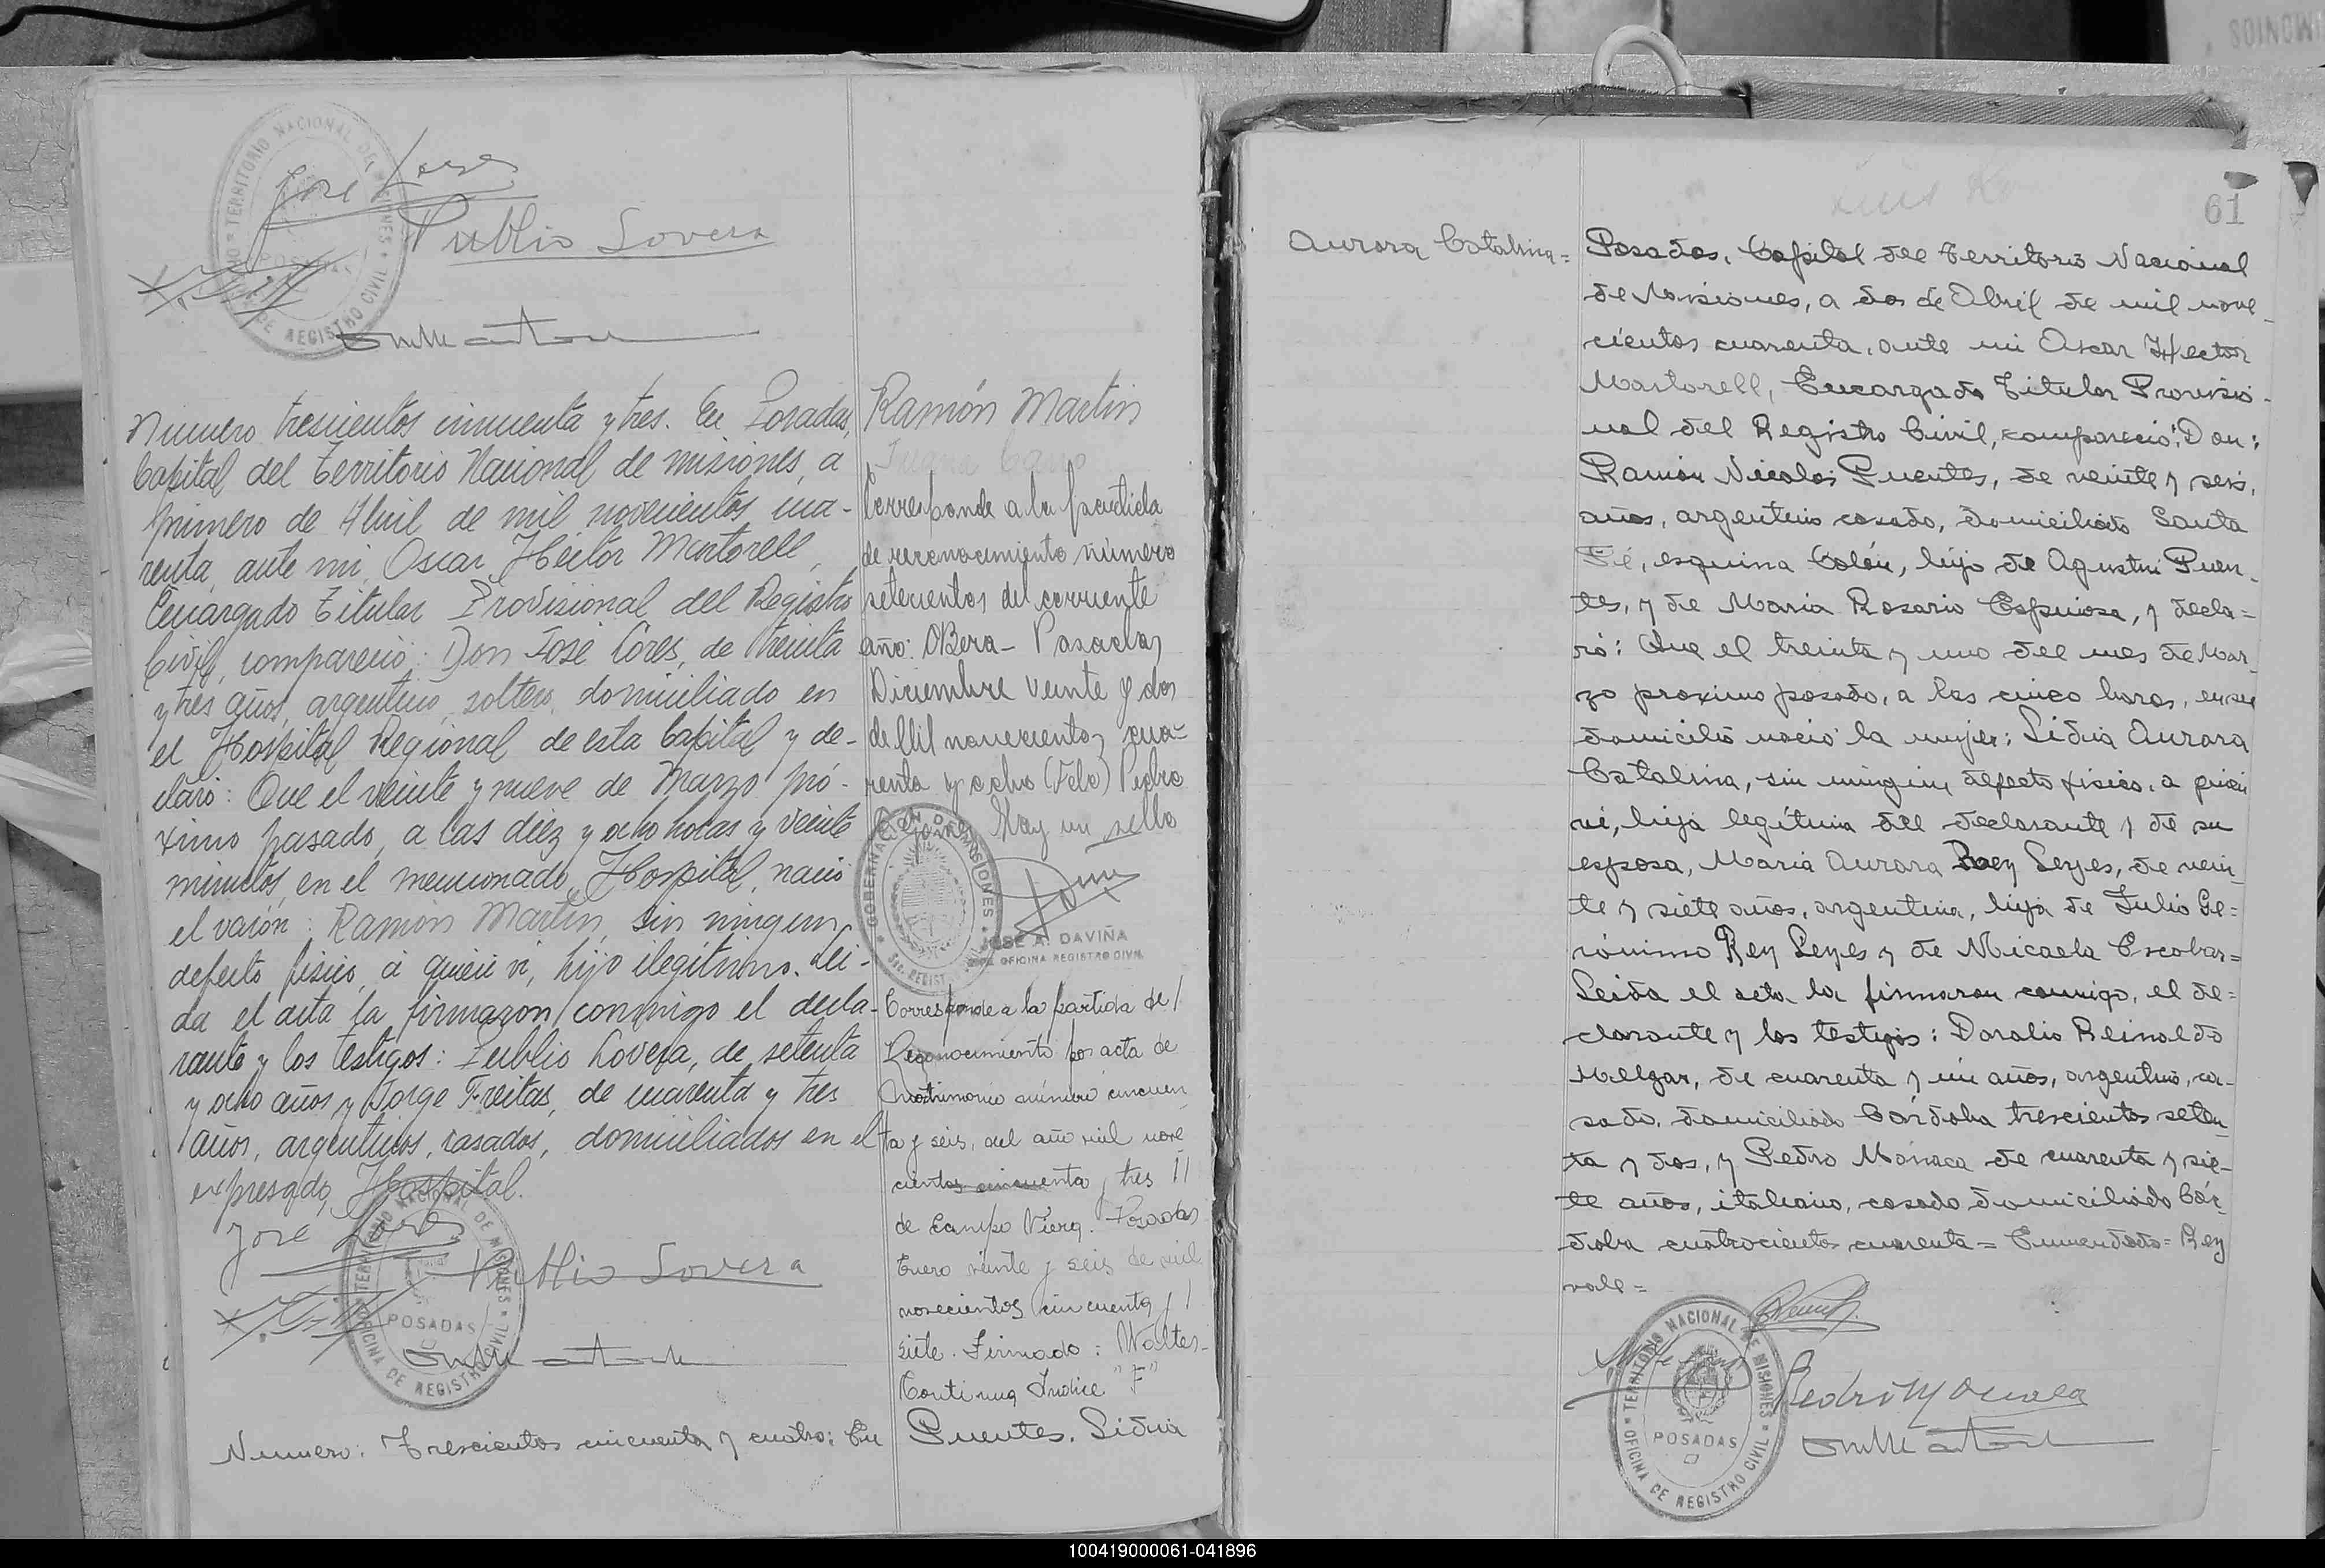 TERRITORIO NACIONAL DE MISIONES
OFICINA DE REGISTRO CIVIL
POSADAS
José Cores
Publio Lovera
Numero trescientos cincuenta y tres. En Posadas,
Capital del Territorio Nacional de Misiones, a
primero de Abril de mil novecientos cua-
renta, ante mi, Oscar Héctor Martorell,
Encargado Titular Provisional del Registro
Civil, compareció: Don José Cores, de treinta
y tres años, argentino, soltero, domiciliado en
el Hospital Regional de esta Capital y de-
claró: Que el veinte y nueve de Marzo pró-
ximo pasado, a las diez y ocho horas y veinte
minutos, en el mencionado Hospital, nació
el varón: Ramón Martin, sin ningun
defecto fisico, a quien vi, hijo ilegítimo. Lei-
da el acta la firmaron conmigo el decla-
rante y los testigos: Publio Lovera, de setenta
y ocho años y Jorge Freitas, de cuarenta y tres
años, argentinos, casados, domiciliados en el
expresado Hospital.
José Cores
Publio Lovera
TERRITORIO NACIONAL DE MISIONES
OFICINA DE REGISTRO CIVIL
POSADAS
Numero: Trescientos cincuenta y cuatro: En
Ramón Martin
Juana Cano
Corresponde a la partida
de reconocimiento número
setecientos del corriente
año: OBera - Posadas
Diciembre veinte y dos
de Mil novecientos cua-
renta y ocho (Fdo) Pedro
Hay un sello
GOBERNACION DE MISIONES
JOSE A. DAVIÑA
JEFE OFICINA REGISTRO CIVIL
Corresponde a la partida de /
Reconocimiento por acta de
Matrimonio número cincuen
ta y seis, del año mil nove
cientos cincuenta y tres //
de Campo Viera. Posadas
Enero veinte y seis de mil
novecientos cincuenta y /
siete. Firmado: Walter-
Continua Indice "F"
Puentes. Lidia
Aurora Catalina=
61
Posadas, Capital del Territorio Nacional
de Misiones, a dos de Abril de mil nove_
cientos cuarenta, ante mi Oscar Hector
Martorell, Encargado Titular Provisio-
nal del Registro Civil, compareció: Don:
Ramón Nicolas Puentes, de veinte y seis,
años, argentino casado, domiciliado Santa
Fé, esquina Colón, hijo de Agustin Puen-
tes, y de Maria Rosario Espinosa, y decla=
ró: Que el treinta y uno del mes de Mar-
zo proximo pasado, a las cinco horas, en su
domicilio nació la mujer: Lidia Aurora
Catalina, sin ningun, defecto fisico, a quien
vi, hija legítima del declarante y de su
esposa, Maria Aurora Rey Leyes, de vein_
te y siete años, argentina, hija de Julio Ge=
rónimo Rey Leyes y de Micaela Escobar=
Leida el acta la firmaron conmigo, el de=
clarante y los testigos: Doralio Reinaldo
Melgar, de cuarenta y un años, argentino, ca-
sado, domiciliado Córdoba trescientos seten_
ta y dos, y Pedro Monaca de cuarenta y sie-
te años, italiano, casado domiciliado Cór-
doba cuatrocientos cuarenta = Enmendado = Rey
vale=
Pedro Monaca
TERRITORIO NACIONAL DE MISIONES
OFICINA DE REGISTRO CIVIL
POSADAS
100419000061-041896